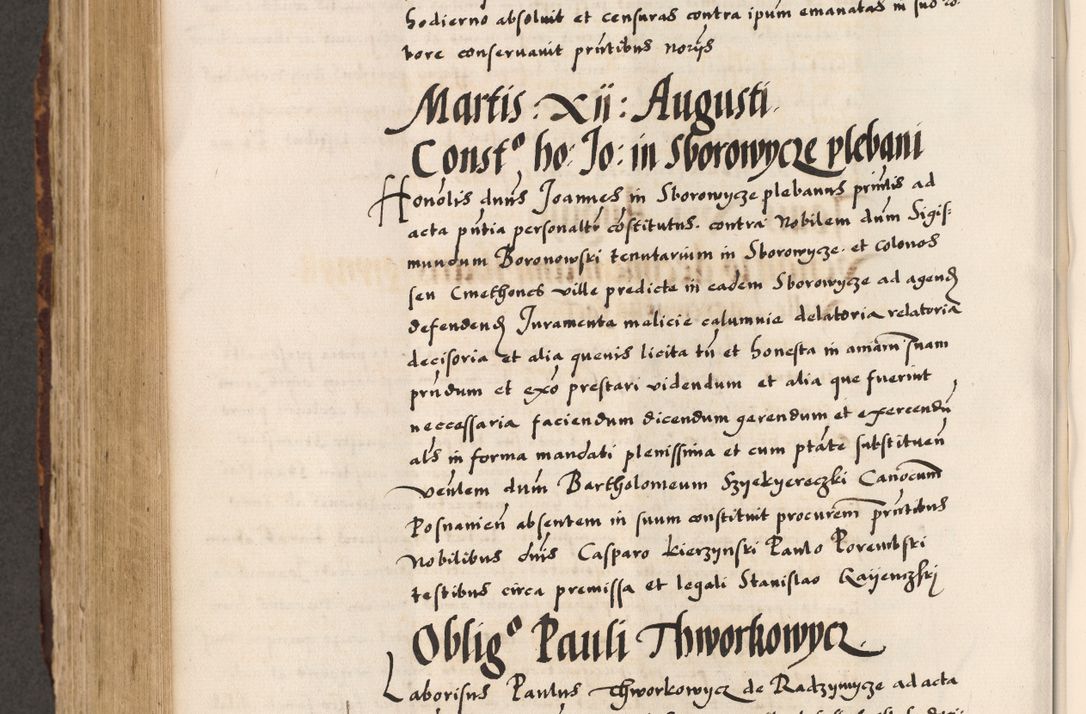 hodierno absoluit et censuras contra ipum emanatas in suo ro-
bore conseruauit pntibus noriis
Martis : Xii : Augusti
Constº ho: Jo: in Sborowycze plebani
Honolis dnus Joannes in Sborowycze plebanus prinlis ad
acta pntia personaltr costitutus. contra Nobilem dum Sigis:
mundum Boronowski tenutarium in Sborowycze. et colonos
seu Cmethones ville predicte in eadem Sborowycze ad agend
defendend Juramenta malicie calumnie delatoria relatoria
decisoria et alia queuis licita tn et honesta in aniam suam
prndum et exo prestari videndum et alia que fuerint
neccessaria faciendum dicendum gerendum et exercendu
als in forma mandati plenissima et cum ptate substituen
venlem dum Bartholomeum Szyekyereczki Canocum
Posnanien absentem in suum constituit procurem pntibus
Nobilibus dnis Casparo Kierzynski Paulo Porembski
testibus circa premissa et legali Stanislao
Obligº Pauli Thworkowycz
Laborisus Paulus Thworkowycz de Radzymycze ad acta